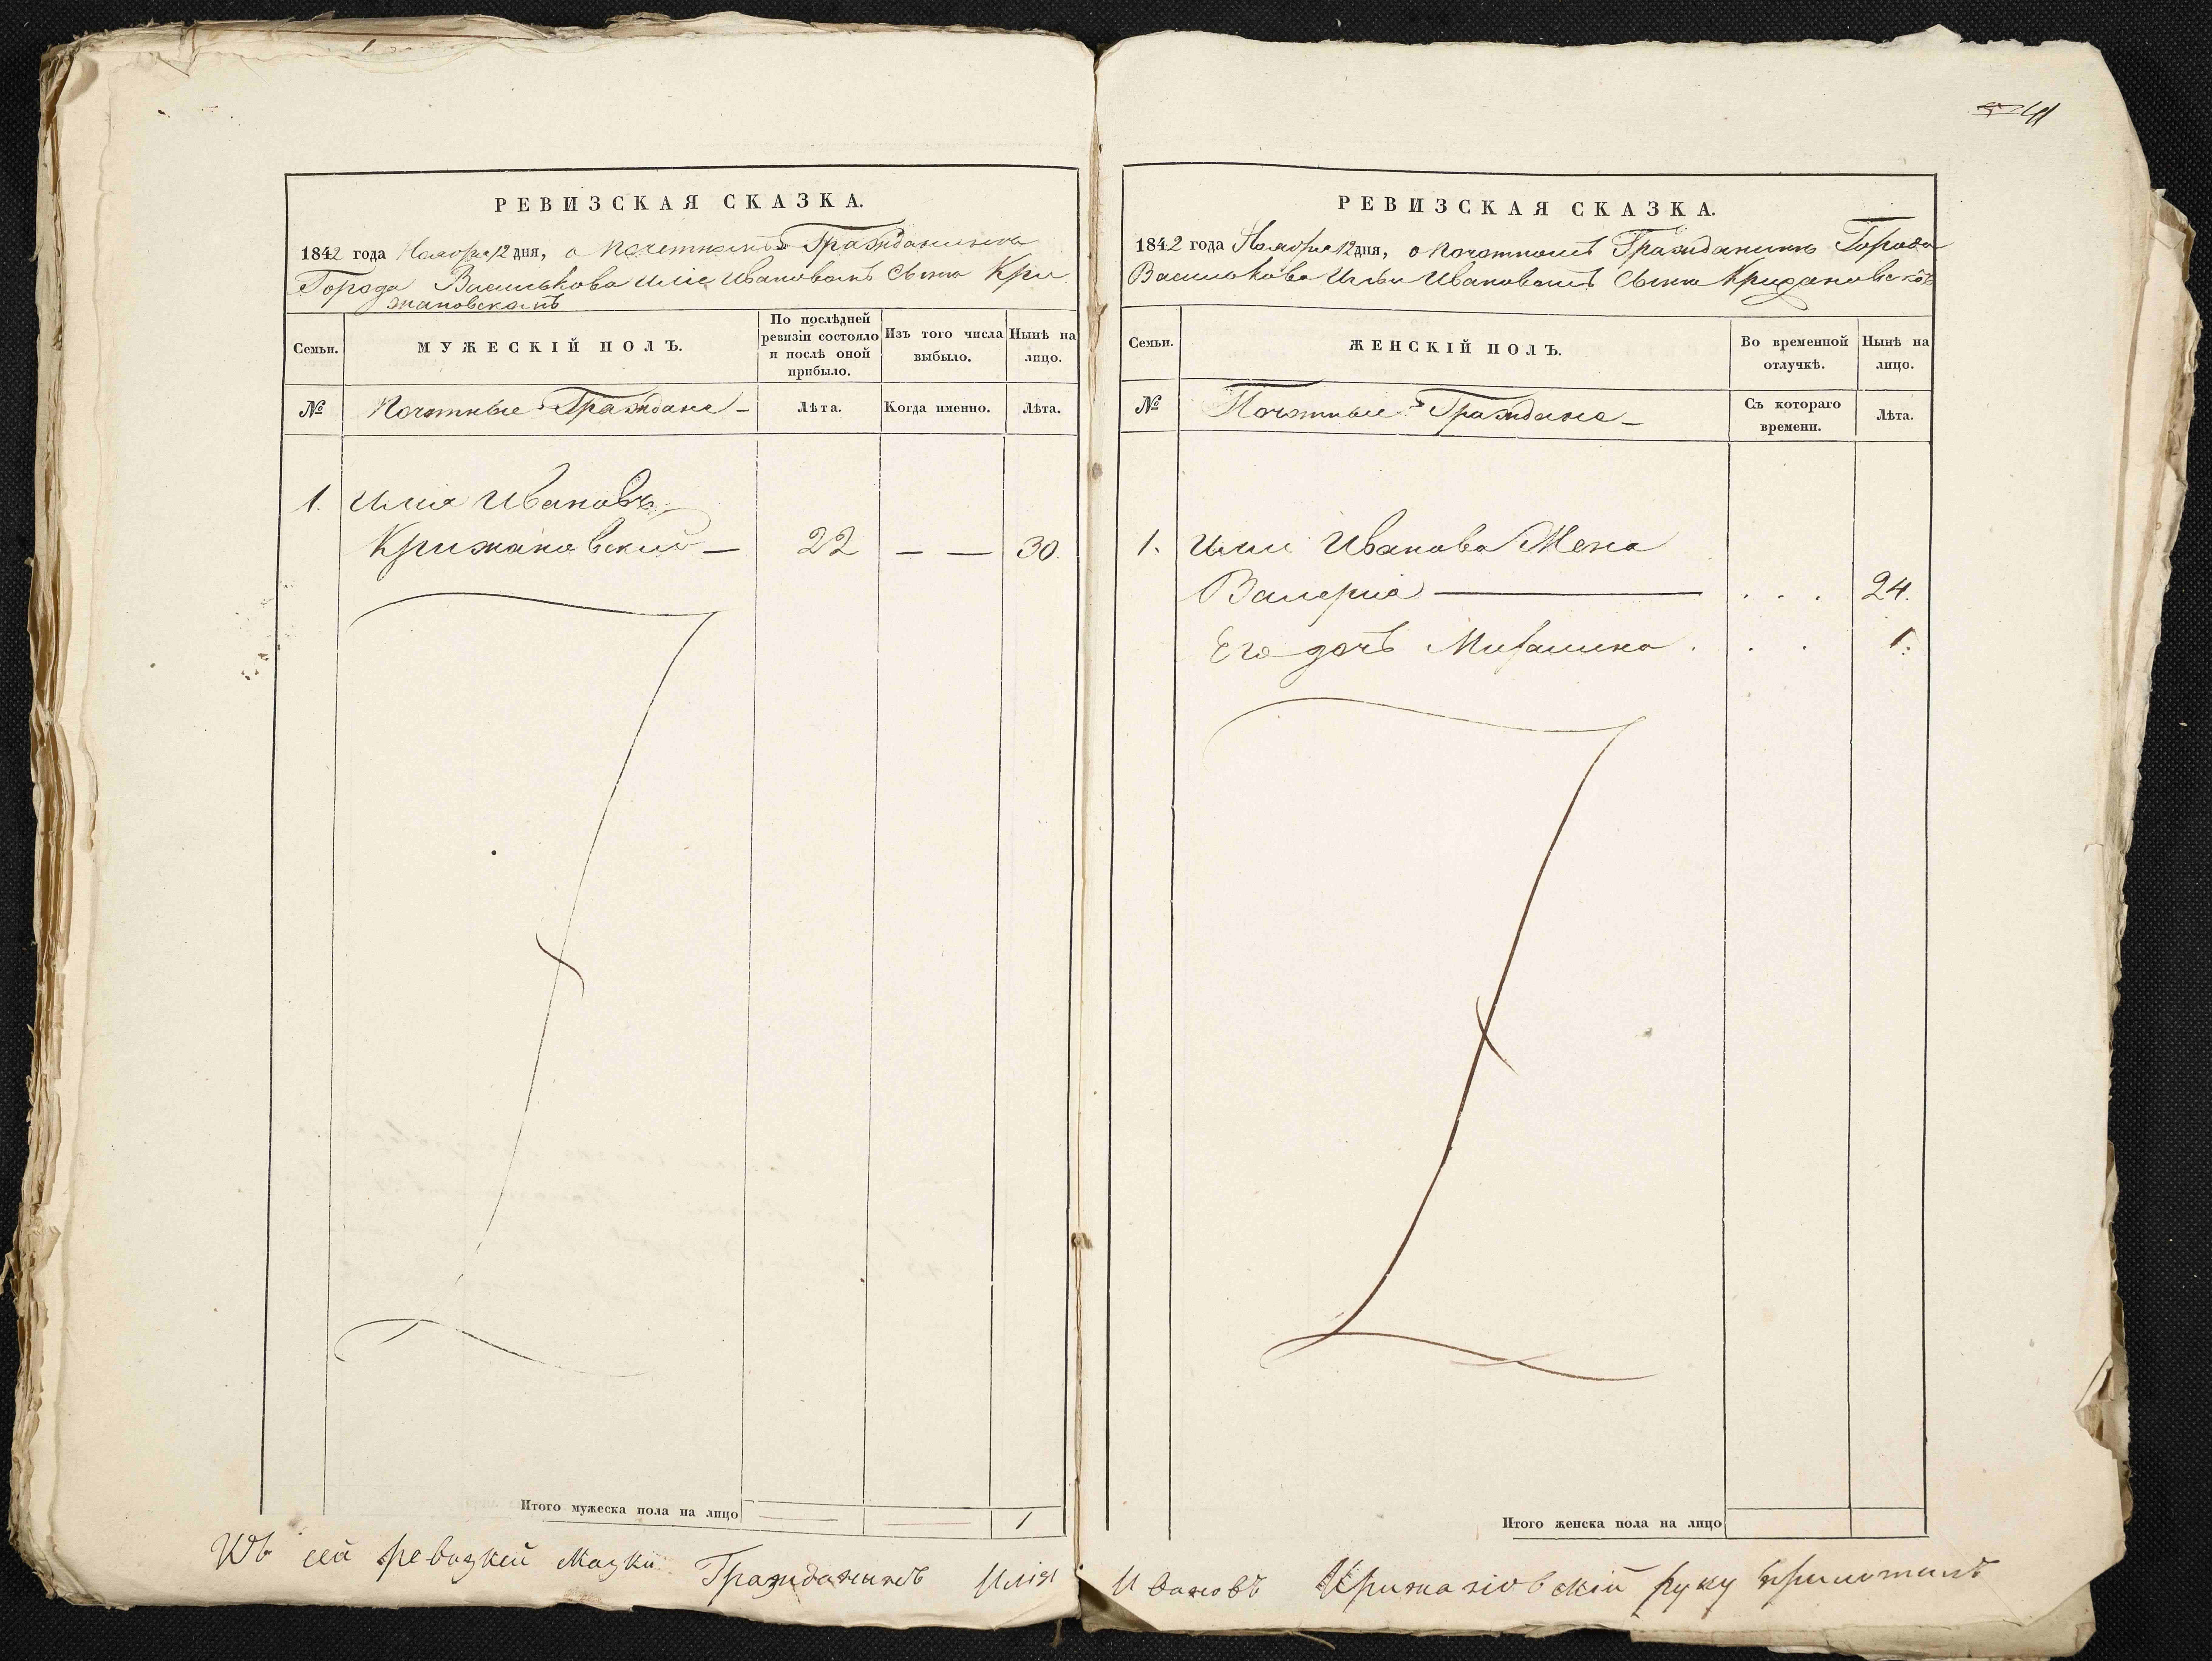 РЕВИЗСКАЯ СКАЗКА.
1842 года Ноября 12 дня, о почетномъ Гражданинѣ
Города Василькова Иліе Ивановомъ Сынѣ Кри
жановскомъ
Семьи.
МУЖЕСКІЙ ПОЛЪ.
По послѣдней
ревизіи состояло
и послѣ оной
прибыло.
Изъ того числа
выбыло.
Нынѣ на
лицо.
№
Почотные Граждане –
Лѣта.
Когда именно.
Лѣта.
1. Илія Ивановъ
Крижановский — 22 — — 30.
Итого мужеска пола на лицо 1
РЕВИЗСКАЯ СКАЗКА.
1842 года Ноября 12 дня, о почотномъ Гражданинѣ Города
Василькова Ильи Ивановомъ Сынѣ Крижановскомъ
Семьи.
ЖЕНСКІЙ ПОЛЪ.
Во временной
отлучкѣ.
Нынѣ на
лицо.
№
Почотные Граждане –
Съ котораго
времени.
Лѣта.
1. Илии Иванова Жена
Валерия — . . . 24.
Его дочь . . . 1.
Итого женска пола на лицо
Къ сей ревизкей сказки Гражданинъ Илія Ивановъ Крижановскій руку приложилъ